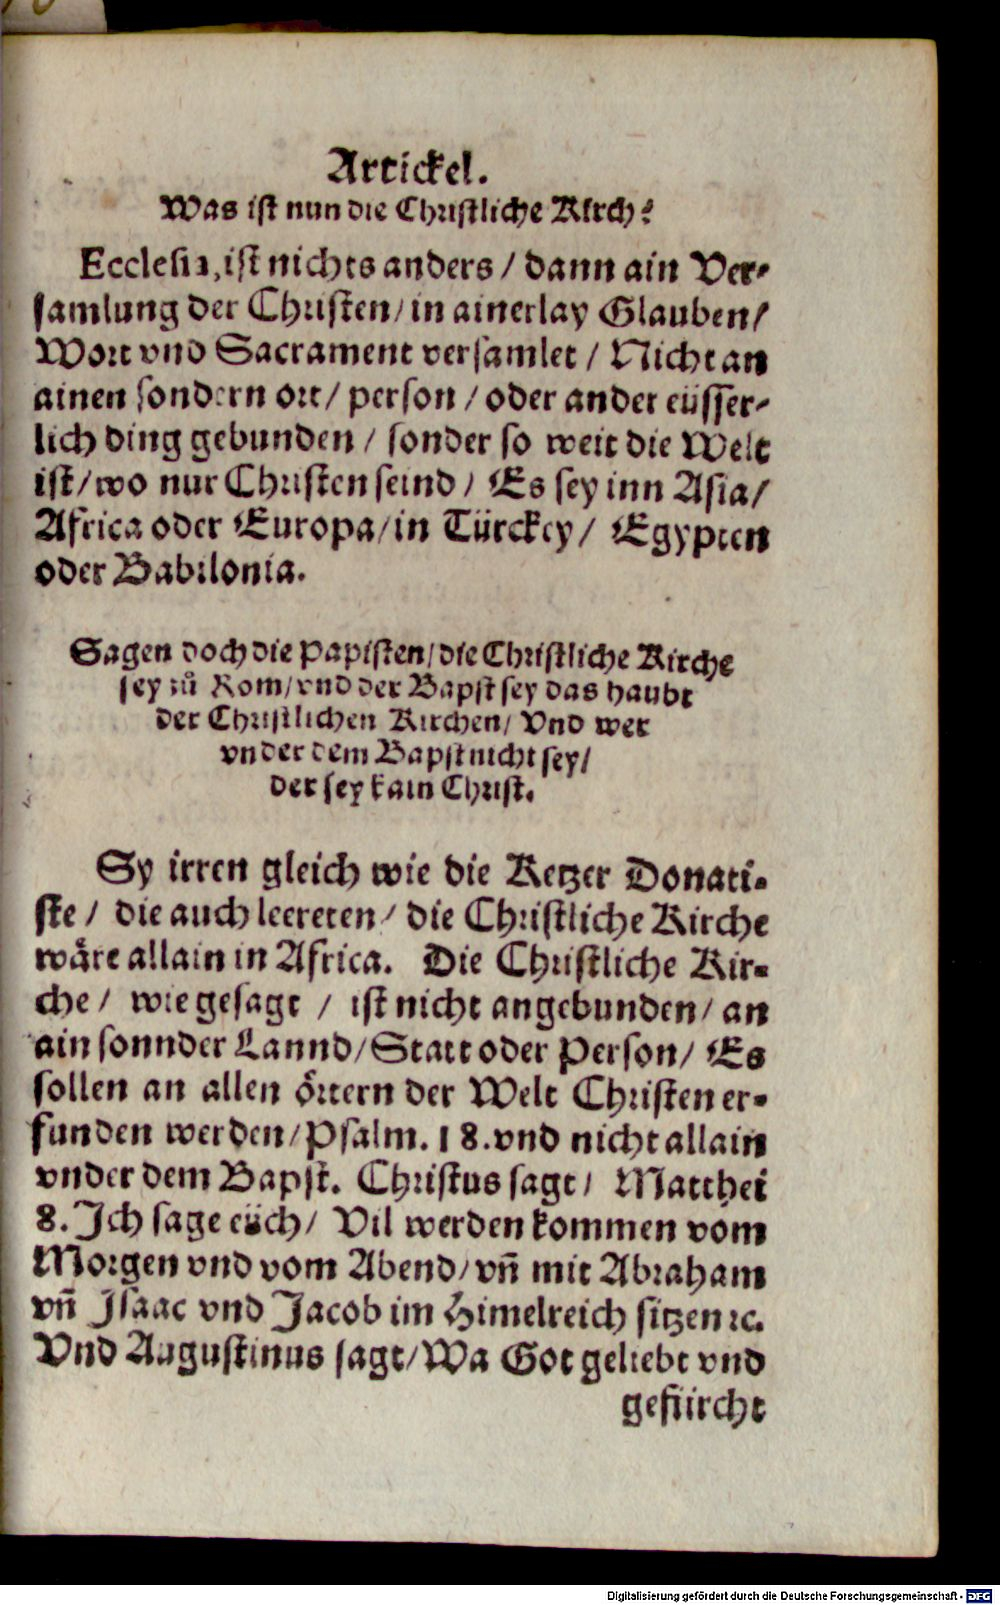 Artickel.
Was ist nun die Christliche Kirch?
Ecclesia, ist nichts anders / dann ain Ver-
samlung der Christen / in ainerlay Glauben /
Wort vnd Sacrament versamlet / Nicht an
ainen sondern ort / person / oder ander eüsser-
lich ding gebunden / sonder so weit die Welt
ist / wo nur Christen seind / Es sey inn Asia /
Africa oder Europa / in Türckey / Egypten
oder Babilonia.
Sagen doch die Papisten / die Christliche Kirche
sey zů Rom / vnd der Bapst sey das haubt
der Christlichen Kirchen / Vnd wer
vnder dem Bapst nicht sey /
der sey kain Christ.
Sy irren gleich wie die Ketzer Donati-
ste / die auch leereten / die Christliche Kirche
wäre allain in Africa. Die Christliche Kir-
che / wie gesagt / ist nicht angebunden / an
ain sonnder Lannd / Statt oder Person / Es
sollen an allen örtern der Welt Christen er-
funden werden / Psalm. 18. vnd nicht allain
vnder dem Bapst. Christus sagt / Matthei
8. Ich sage eüch / Vil werden kommen vom
Morgen vnd vom Abend / vñ mit Abraham
vñ Isaac vnd Jacob im Himelreich sitzen ꝛc.
Vnd Augustinus sagt / Wa Got geliebt vnd
gefürcht
Digitalisierung gefördert durch die Deutsche Forschungsgemeinschaft - DFG